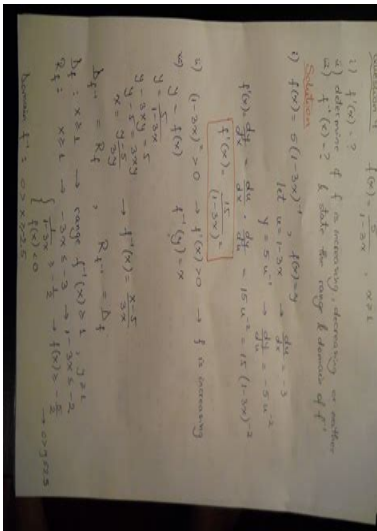 f(x) = 5/(1-3x) , x≥1
1) f'(x) = ?
2) determine if f is increasing, decreasing or neither
3) f⁻¹(x) = ? & state the range & domain of f⁻¹
Solution
1) f(x) = 5(1-3x)⁻¹ , f(x) = y
let u = 1-3x → du/dx = -3
y = 5u⁻¹ → dy/du = -5u⁻²
f'(x) = dy/dx = du/dx · dy/du = 15u⁻² = 15(1-3x)⁻²
f'(x) = 15/(1-3x)²
2) (1-3x)² > 0 → f'(x) > 0 → f is increasing
3) y = f(x) f⁻¹(y) = x
y = 5/(1-3x)
y - 3xy = 5
y - 5 = 3xy
x = (y-5)/3y → f⁻¹(x) = (x-5)/3x
D_f⁻¹ = R_f , R_f⁻¹ = D_f
D_f : x≥1 → range f⁻¹(x) ≥ 1 , y≥1
R_f : x≥1 → -3x ≤ -3 → 1-3x ≤ -2